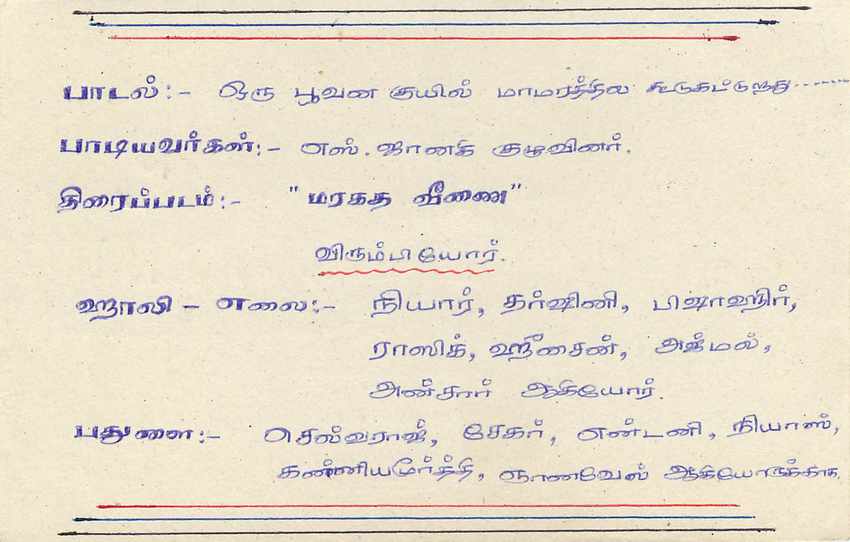 பாடல்:- ஒரு பூவன குயில் மாமரத்தில கூடுகட்டுறது------
பாடியவர்கள்:- எஸ். ஜானகி குழுவினர்.
திரைப்படம்:- "மரகத வீணை"
விரும்பியோர்.
ஹாலி - எலை:- நியார், தர்ஷினி, பிஷாஹிர்,
ராஸிக், ஹீசைன், அஜ்மல்,
அன்சார் ஆகியோர்.
பதுளை:- செல்வராஜ், சேகர், எண்டனி, நியாஸ்,
கண்ணியமூர்த்தி, ஞானவேல் ஆகியோருக்காக.